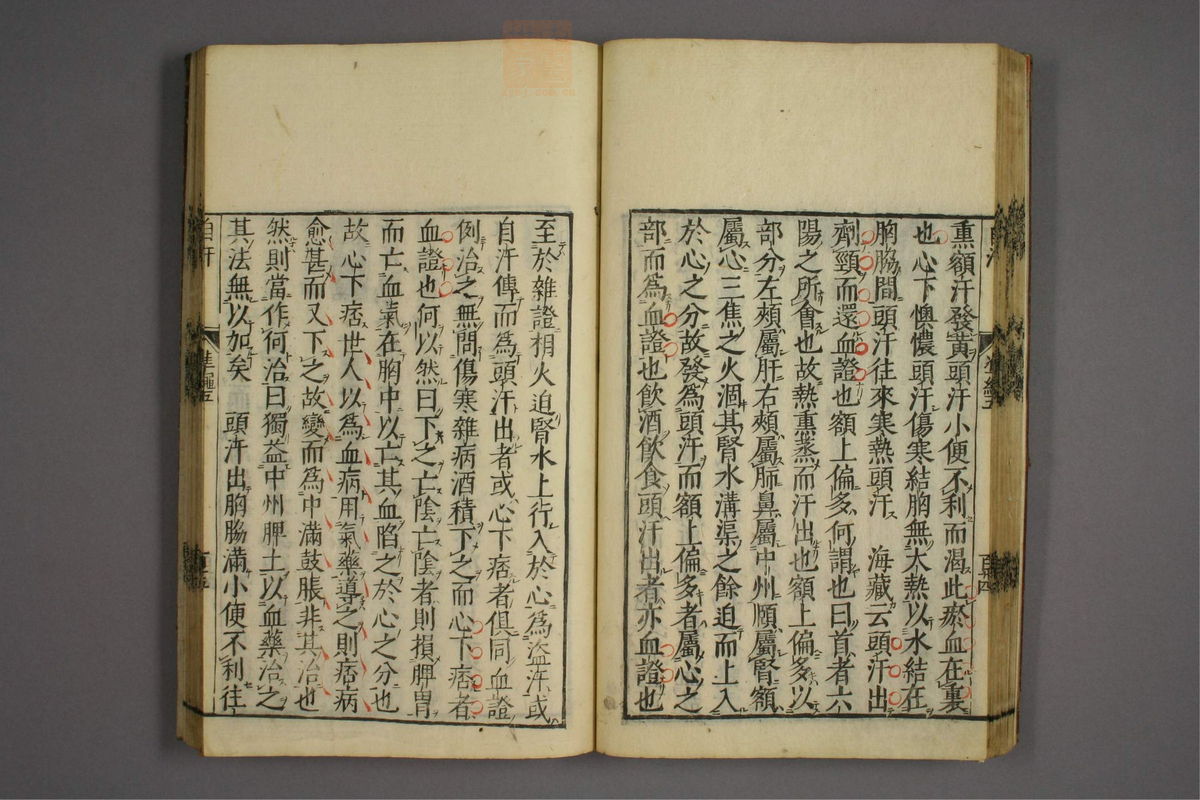 熏額汗發黃頭汗小便不利而渴此瘀血在裏
也心下懊憹頭汗傷寒結胸無大熱以水結在
胸脇間頭汗往來寒熱頭汗　海藏云頭汗出
劑頸而還血證也額上偏多何謂也曰首者六
陽之所會也故熱熏蒸而汗出也額上偏多以
部分左頰屬肝右頰屬肺鼻屬中州頤屬腎額
屬心三焦之火涸其腎水溝渠之餘迫而上入
於心之分故發爲頭汗而額上偏多者屬心之
部而爲血證也飲酒飲食頭汗出者亦血證也
至於雜證相火迫腎水上行入於心爲盜汗或
自汗傳而爲頭汗出者或心下痞者俱同血證
例治之無問傷寒雜病酒積下之而心下痞者
血證也何以然曰下之亡陰亡陰者則損脾胃
而亡血氣在胸中以亡其血陷之於心之分也
故心下痞世人以爲血病用氣藥導之則痞病
愈甚而又下之故變而爲中滿鼓脹非其治也
然則當作何治曰獨益中州脾土以血藥治之
其法無以加矣　頭汗出胸脇滿小便不利往
自汗
準繩五